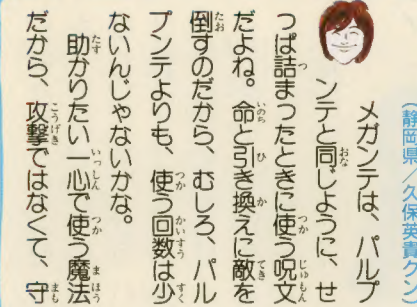 (静岡県／久保英貴クン
メガンテは、パルプ
ンテと同じように、せ
っぱ詰まったときに使う呪文
だよね。命と引き換えに敵を
倒すのだから、むしろ、パル
プンテよりも、使う回数は少
ないんじゃないかな。
助かりたい一心で使う魔法
だから、攻撃ではなくて、守